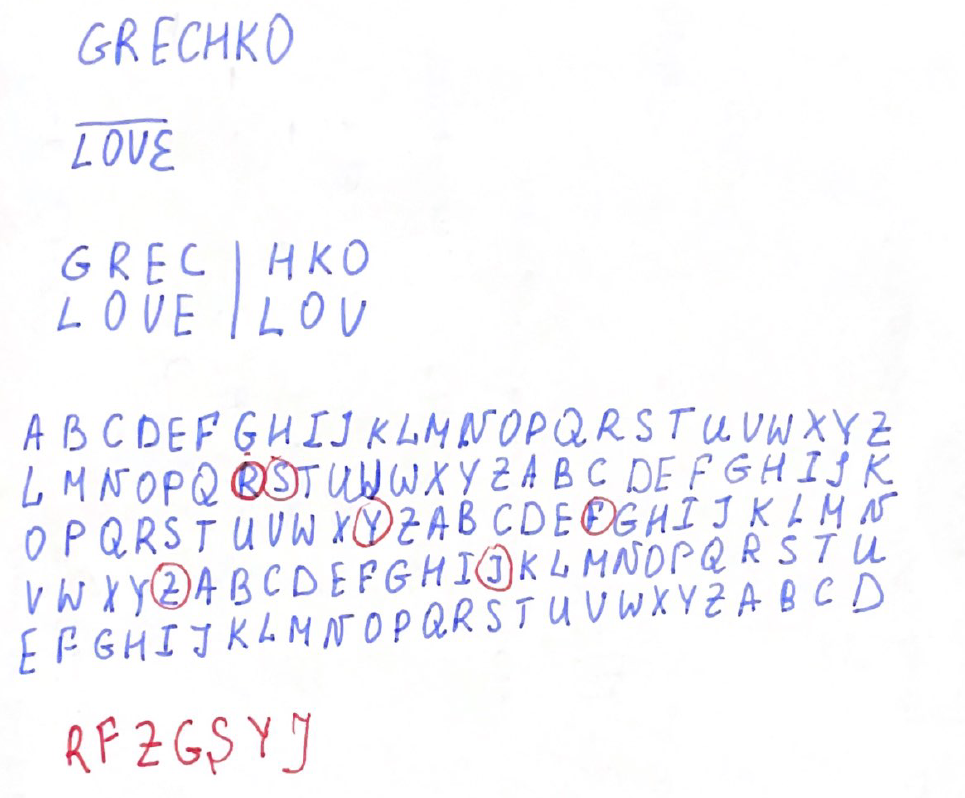 GRECHKO
LOVE
GREC | HKO
LOVE | LOV
A B C D E F G H I J K L M N O P Q R S T U V W X Y Z
L M N O P Q R S T U V W X Y Z A B C D E F G H I J K
O P Q R S T U V W X Y Z A B C D E F G H I J K L M N
V W X Y Z A B C D E F G H I J K L M N O P Q R S T U
E F G H I J K L M N O P Q R S T U V W X Y Z A B C D
RFZGSYJ